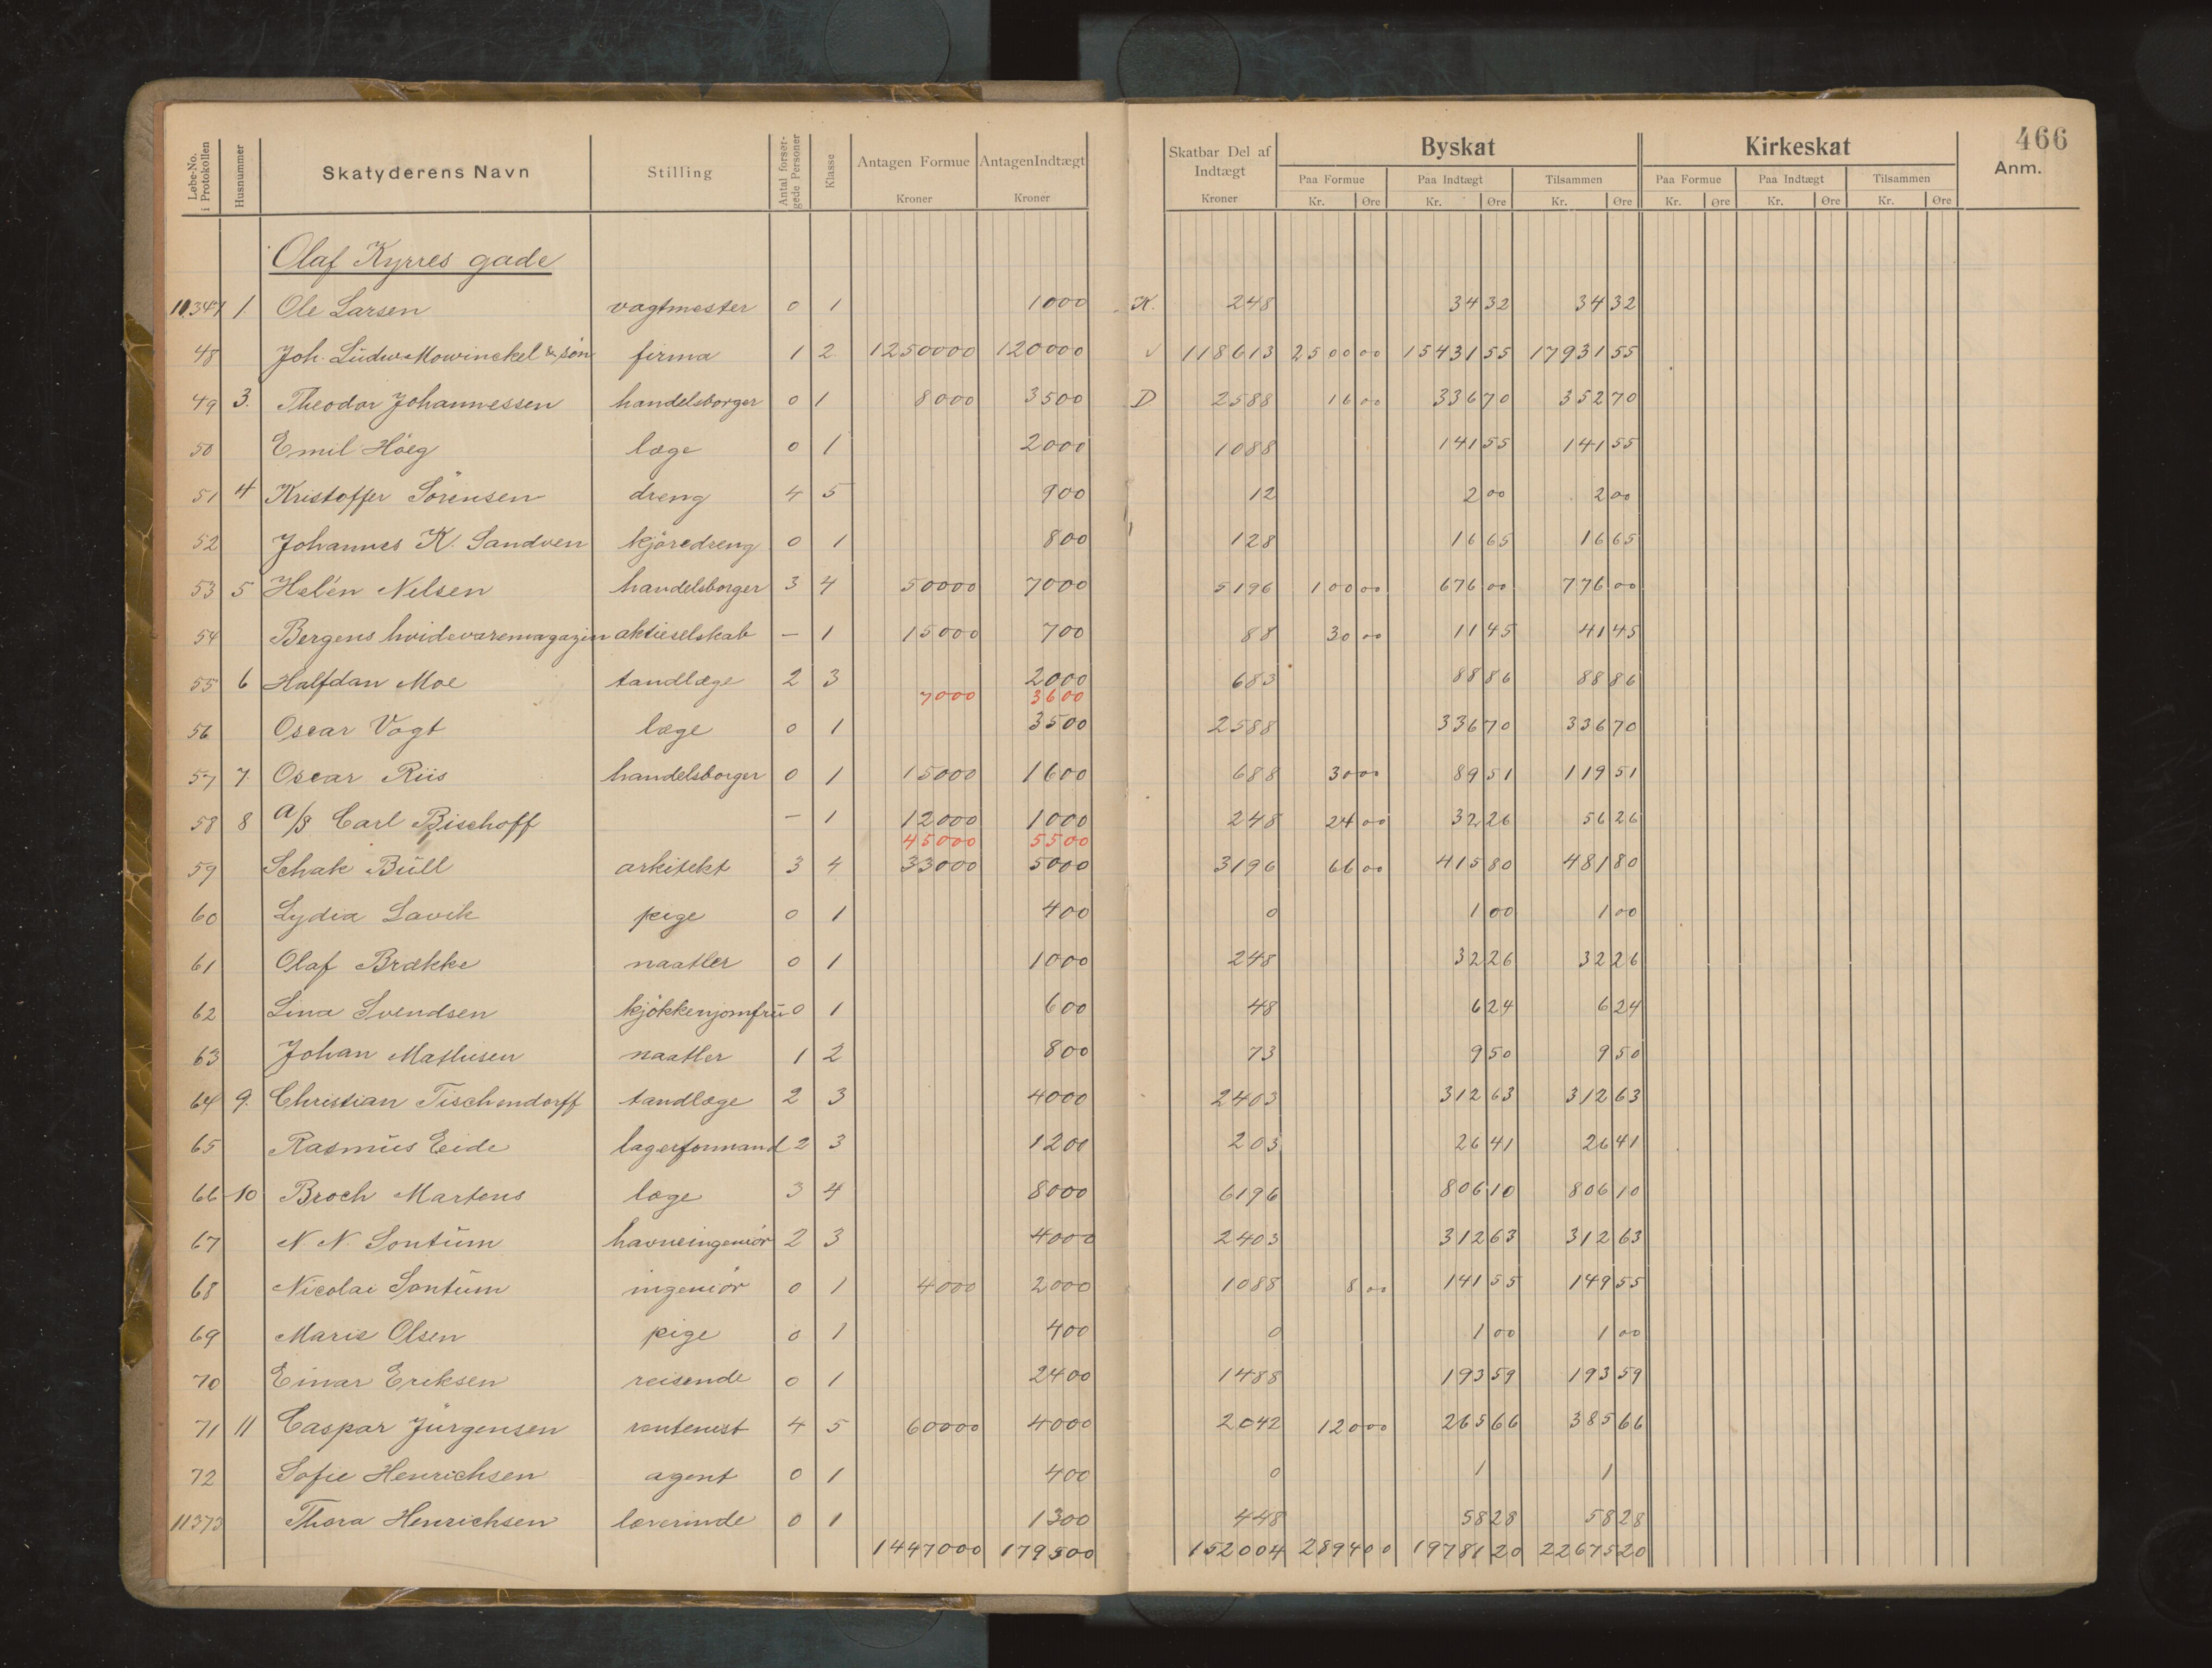 466
Løbe-No. i Protokollen Husnummer Skatyderens Navn Stilling Antal forsørgede Personer Klasse Antagen Formue Kroner Antagen Indtægt Kroner Skatbar Del af Indtægt Kroner Byskat Paa Formue Kr. Øre Paa Indtægt Kr. Øre Tilsammen Kr. Øre Kirkeskat Paa Formue Kr. Øre Paa Indtægt Kr. Øre Tilsammen Kr. Øre Anm.
Olaf Kyrres gade
11347 1 Ole Larsen vagtmester 0 1 1000 K. 248 34 32 34 32
48 Joh. Ludw Mowinckel & søn firma 1 2 1250000 120000 ✓ 118613 2500 00 15431 55 17931 55
49 3. Theodor Johannessen handelsborger 0 1 8000 3500 D 2588 16 00 336 70 352 70
50 Emil Höeg læge 0 1 2000 1088 141 55 141 55
51 4 Kristoffer Sörensen dreng 4 5 900 12 2 00 2 00
52 Johannes K. Sandven kjöredreng 0 1 800 128 16 65 16 65
53 5 Helén Nilsen handelsborger 3 4 50000 7000 5196 100 00 676 00 776 00
54 Bergens hvidevaremagazin aktieselskab – 1 15000 700 88 30 00 11 45 41 45
55 6 Halfdan Moe tandlæge 2 3 2000 683 88 86 88 86
7000 3600
56 Oscar Vogt læge 0 1 3500 2588 336 70 336 70
57 7. Oscar Riis handelsborger 0 1 15000 1600 688 30 00 89 51 119 51
58 8 A/S Carl Bischoff – 1 12000 1000 248 24 00 32 26 56 26
45000 5500
59 Schak Bull arkitekt 3 4 33000 5000 3196 66 00 415 80 481 80
60 Lydia Lavik pige 0 1 400 0 1 00 1 00
61 Olaf Brække naatler 0 1 1000 248 32 26 32 26
62 Lina Svendsen kjökkenjomfru 0 1 600 48 6 24 6 24
63 Johan Mathisen naatler 1 2 800 73 9 50 9 50
64 9. Christian Tischendorff tandlæge 2 3 4000 2403 312 63 312 63
65 Rasmus Eide lagerformand 2 3 1200 203 26 41 26 41
66 10 Broch Martens læge 3 4 8000 6196 806 10 806 10
67 N. N. Sontum havneingeniör 2 3 4000 2403 312 63 312 63
68 Nicolai Sontum ingeniör 0 1 4000 2000 1088 8 00 141 55 149 55
69 Marie Olsen pige 0 1 400 0 1 00 1 00
70 Einar Eriksen reisende 0 1 2400 1488 193 59 193 59
71 11 Caspar Jürgensen rentenist 4 5 60000 4000 2042 120 00 265 66 385 66
72 Sofie Henrichsen agent 0 1 400 0 1 1
11373 Thora Henrichsen lærerinde 0 1 1300 448 58 28 58 28
1447000 179500 152004 2894 00 19781 20 22675 20